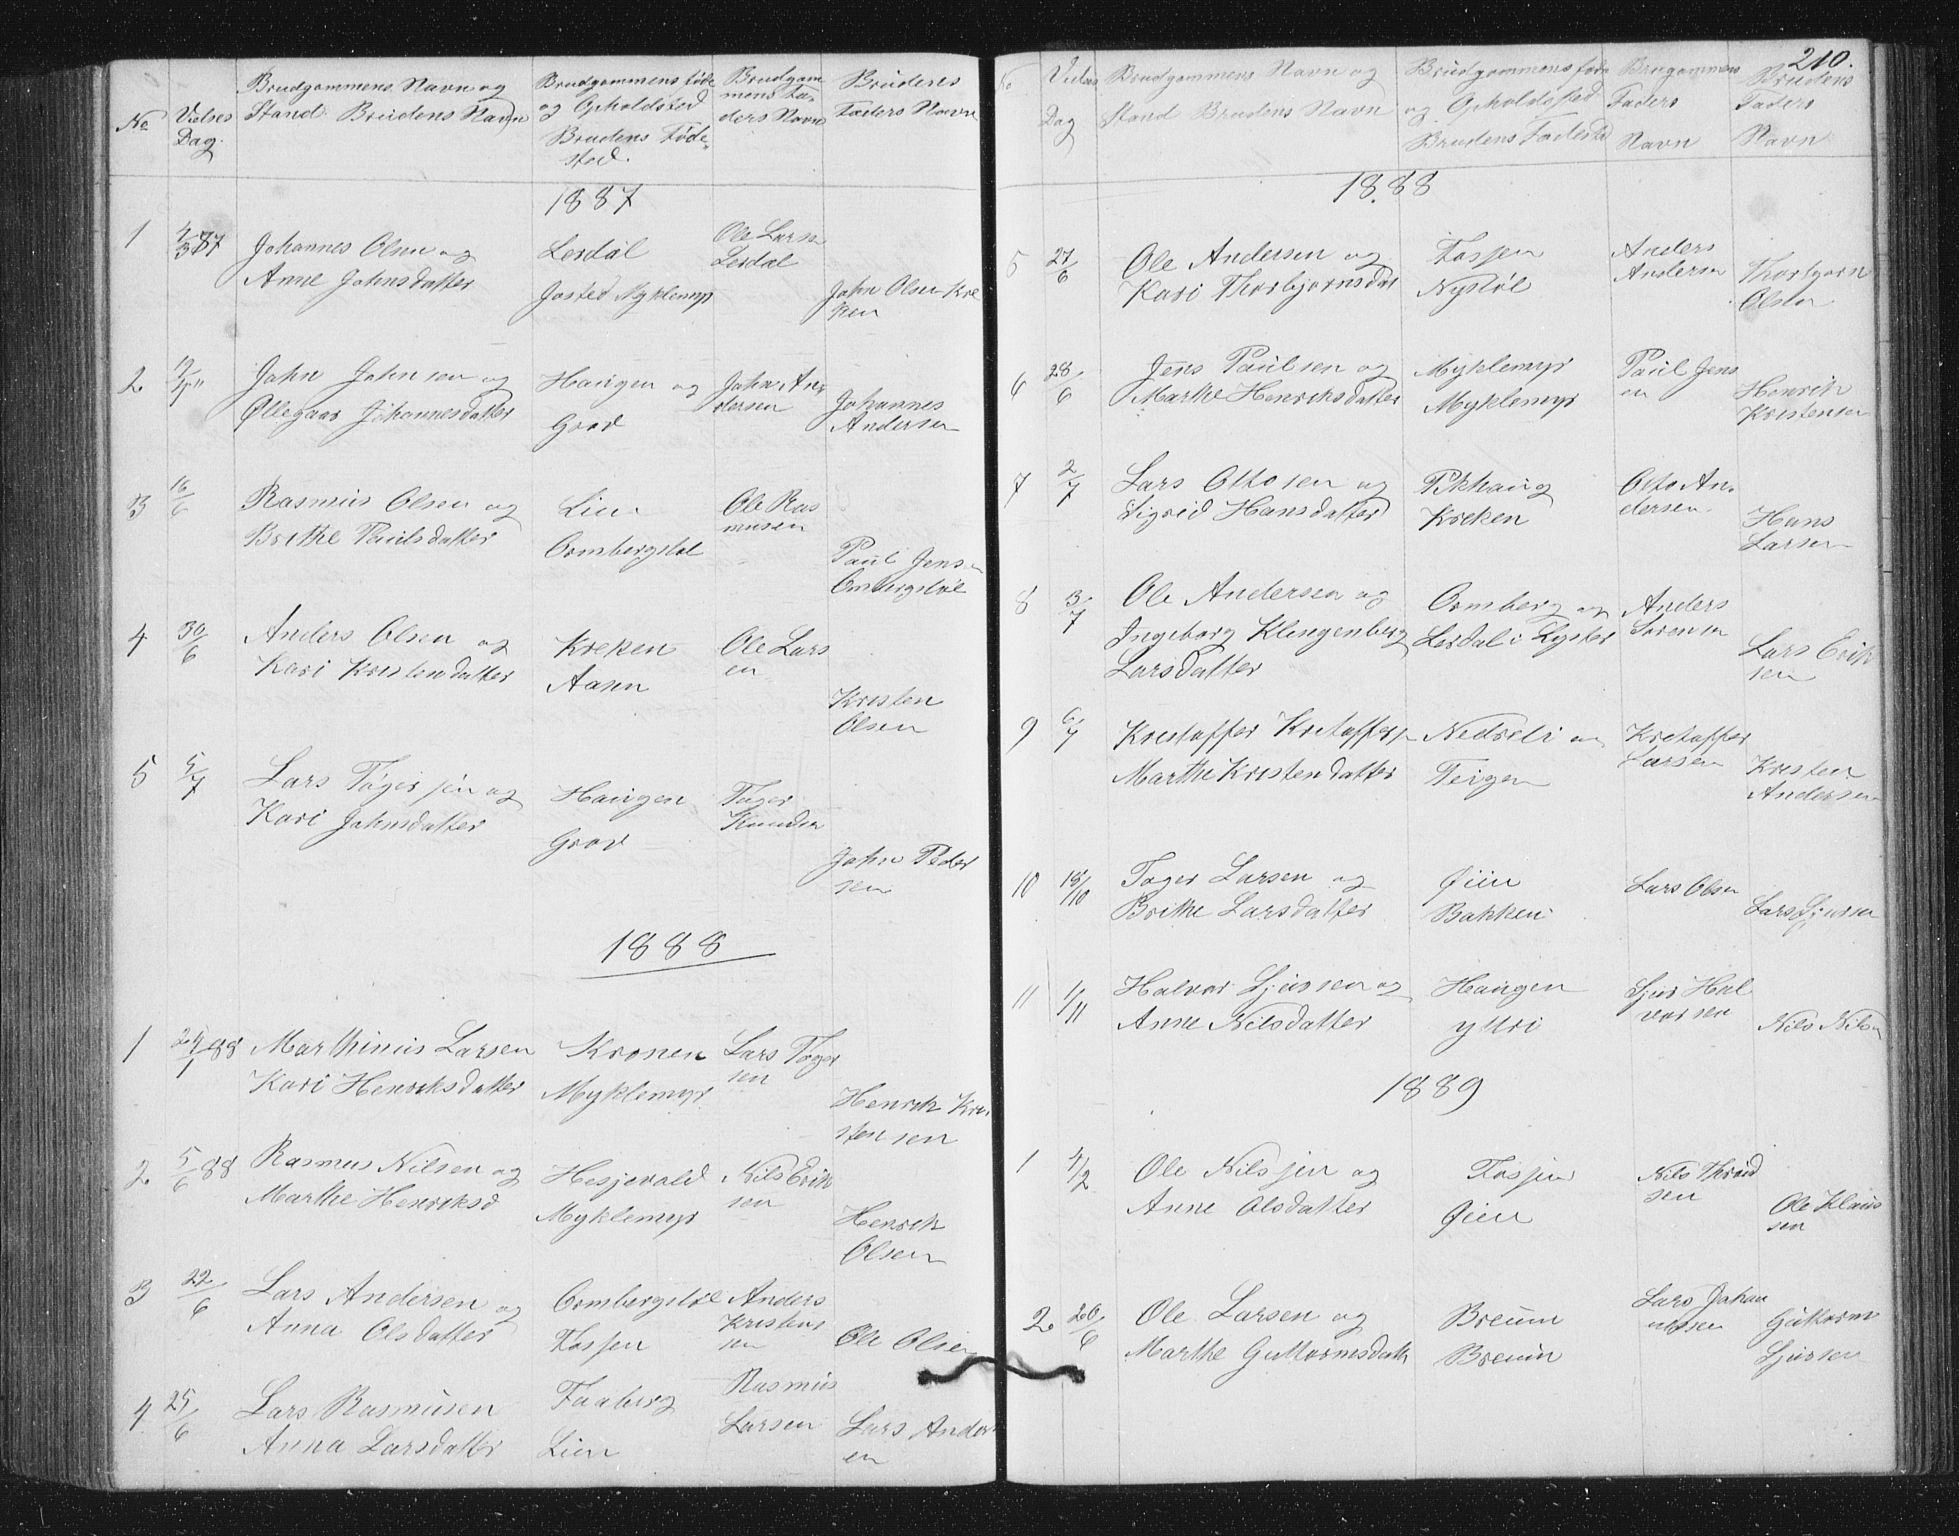 No
Vielses
Dag.
Brudgommens Navn og
Stand. Brudens Navn
Brudgommens føde
og Opholdsted
Brudens Føde-
sted.
Brudgom
mens Fa-
ders Navn
Brudens
Faders Navn
1887
1
Johannes Olsen og
Anne Johnsdatter
Lerdal
Josted Myklemyr
Ole Larsen
Lerdal
John Olsen Kre
ken
2
John Johnsen og
Øllegaar Johannesdatter
Haugen og
Grov
John An-
dersen
Johannes
Andersen
3
16/6
Rasmus Olsen og
Brithe Paulsdatter
Lien
Ormbergstøl
Ole Ras
musen
Paul Jensen
Ormbergstøl
4
30/6
Anders Olsen og
Kari Kristendatter
Kreken
Aasen
Ole Lars
en
Kristen
Olsen
5
5/7
Lars Tøgersen og
Kari Johnsdatter
Haugen
Grov
Tøger
Knudsen
John Peder
sen
1888
1
24/1 88
Marthinus Larsen
Kari Henriksdatter
Kronen
Myklemyr
Lars Tøger
sen
Henrik Kri-
stensen
2
5/6 88
Rasmus Nilsen og
Marthe Henriksd
Hesjevold
Myklemyr
Nils Erik
sen
Henrik
Olsen
3
22/6
Lars Andersen og
Anna Olsdatter
Ormbergstøl
Fossen
Anders
Kristens
sen
Ole Olsen
4
25/6
Lars Rasmusen
Anna Larsdatter
Faaberg
Lien
Rasmus
Larsen
Lars Anders
en
210.
No
Vielses
Dag
Brudgommens Navn og
Stand Brudens Navn
Brudgommens føde
og Opholdsted
Brudens Fødested
Brugommens
Faders
Navn
Brudens
Faders
Navn
1888
5
27/6
Ole Andersen og
Kari Thorbjørnsdat
Fossen
Nystøl
Anders
Andersen
Thorbjørn
Olsen
6
28/6
Jens Paulsen og
Marthe Henriksdatter
Myklemyr
Myklemyr
Paul Jens
en
Henrik
Kristensen
7
2/7
Lars Ottosen og
Sigrid Hansdatter
Pikhaug
Kreken
Otto An-
dersen
Hans
Larsen
8
3/7
Ole Andersen og
Ingeborg Klingenberg
Larsdatter
Ormberg og
Lerdal i Lyster
Anders
Sørensen
Lars Erik
sen
9
6/7
Kristoffer Kristoffers
Marthe Kristendatter
Nedreli og
Teigen
Kristoffer
Larsen
Kristen
Andersen
10
18/10
Tøger Larsen og
Brithe Larsdatter
Øien
Bakken
Lars Olsen
Lars Sjursen
11
1/11
Halvor Sjursen og
Anne Nilsdatter
Haugen
Yttri
Sjur Hal
vorsen
Nils Nilsen
1889
1
4/2
Ole Nilssen og
Anne Olsdatter
Fossen
Øien
Nils Thrond
sen
Ole Klaus
sen
2
20/6
Ole Larsen og
Marthe Guttormsdatt
Breum
Breum
Lars Johan
nessen
Guttorm
Sjursen